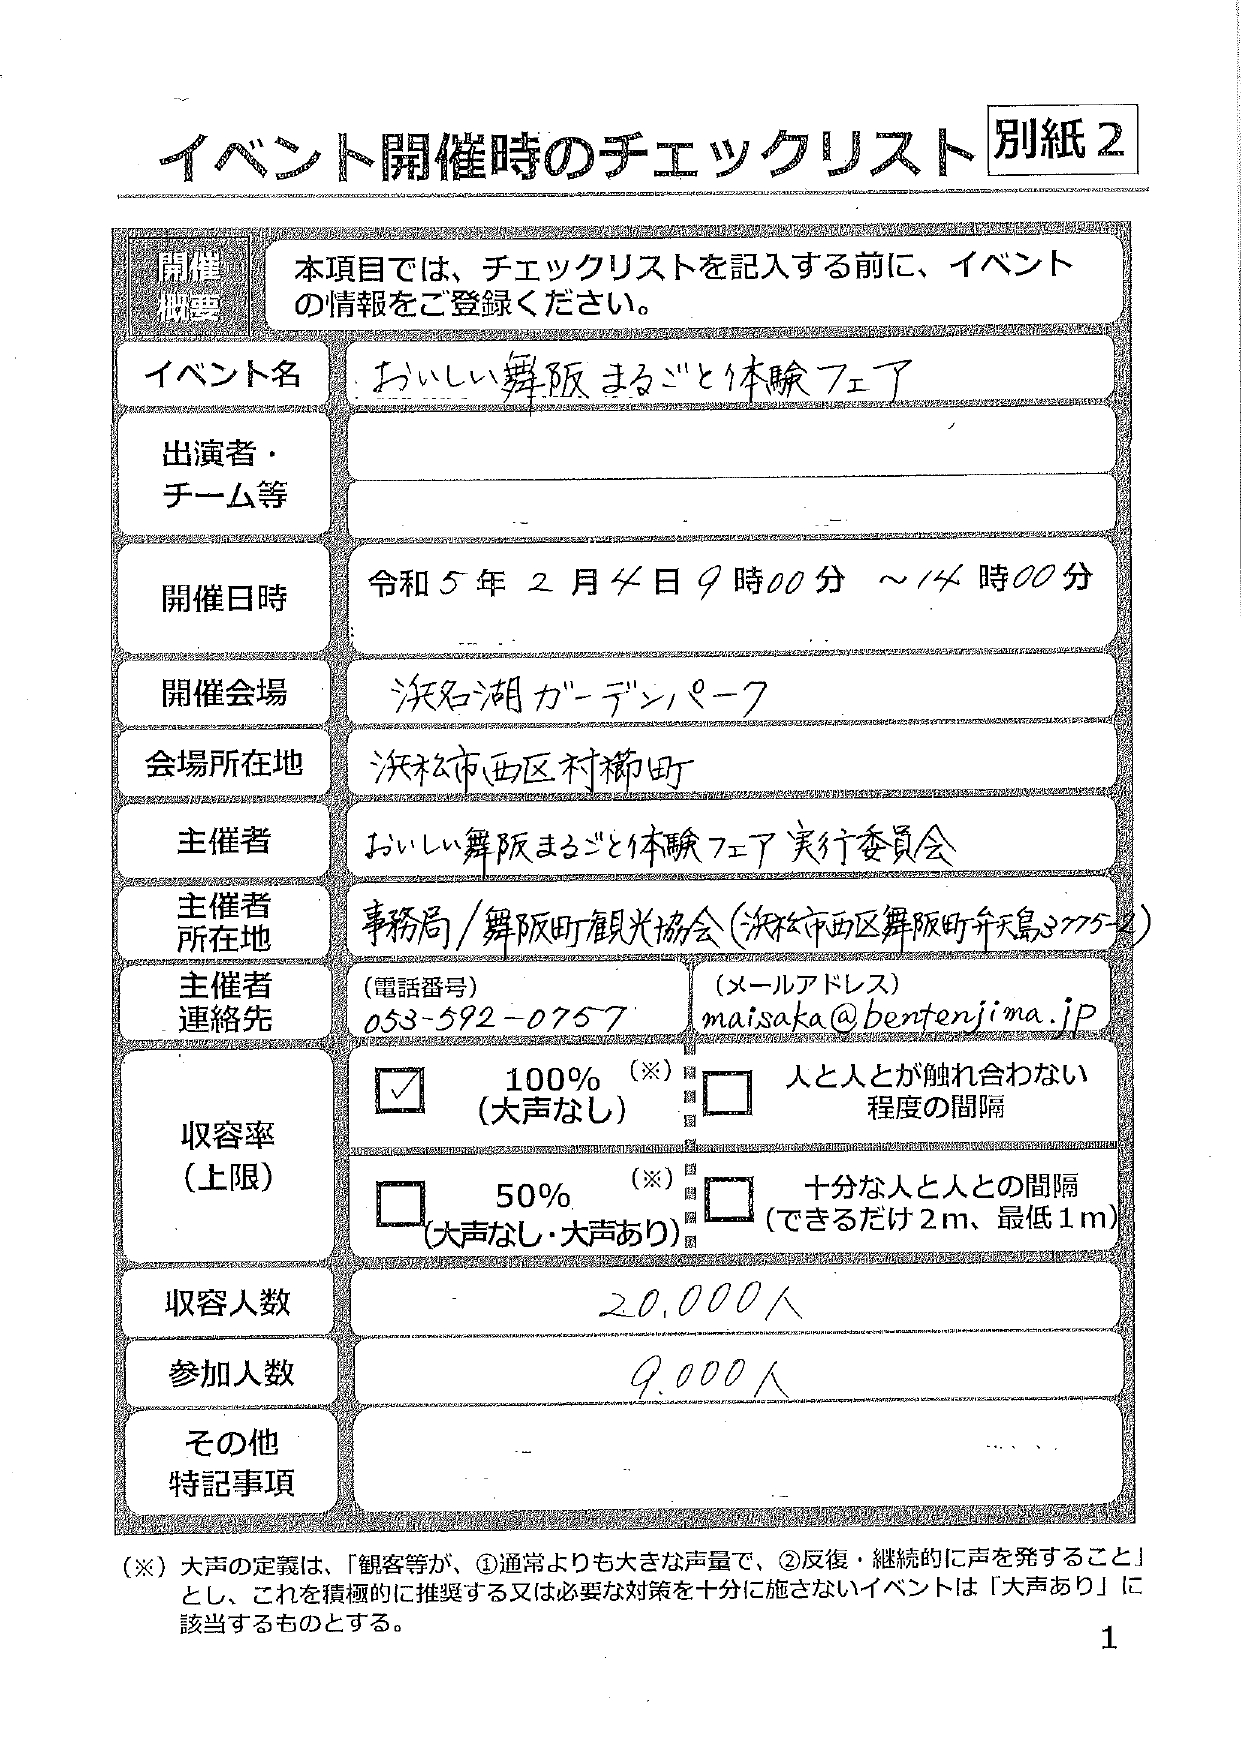 イベント開催時のチェックリスト
別紙２
開催
概要
本項目では、チェックリストを記入する前に、イベント
の情報をご登録ください。
イベント名
おいしい舞阪まるごと体験フェア
出演者・
チーム等
開催日時
令和5年 2月4日 9時00分 ～14時00分
開催会場
浜名湖ガーデンパーク
会場所在地
浜松市西区村櫛町
主催者
おいしい舞阪まるごと体験フェア実行委員会
主催者
所在地
事務局/舞阪町観光協会(浜松市西区舞阪町弁天島3775-2)
主催者
連絡先
（電話番号）
053-592-0757
（メールアドレス）
maisaka@bentenjima.jp
収容率
（上限）
✓
100% （※）
（大声なし）
人と人とが触れ合わない
程度の間隔
50% （※）
（大声なし・大声あり）
十分な人と人との間隔
（できるだけ２ｍ、最低１ｍ）
収容人数
20,000人
参加人数
9,000人
その他
特記事項
（※）大声の定義は、「観客等が、①通常よりも大きな声量で、②反復・継続的に声を発すること」
とし、これを積極的に推奨する又は必要な対策を十分に施さないイベントは「大声あり」に
該当するものとする。
1